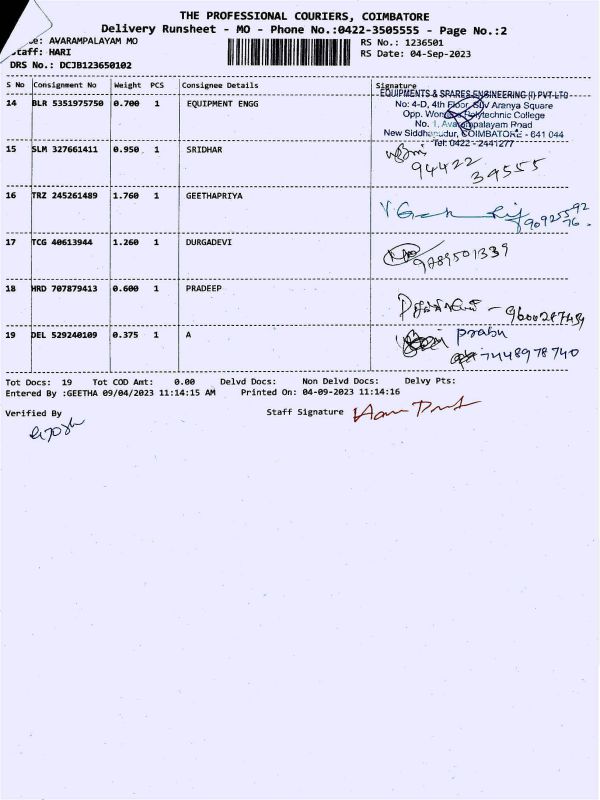 THE PROFESSIONAL COURIERS, COIMBATORE
Delivery Runsheet - MO - Phone No.:0422-3505555 - Page No.:2
AVARAMPALAYAM MO RS No.: 1236501
HARI RS Date: 04-Sep-2023
DRS No.: DCJB123650102
S No Consignment No Weight PCS Consignee Details Signature
14 BLR 5351975750 0.700 1 EQUIPMENT ENGG
EQUIPMENTS & SPARES ENGINEERING (I) PVT LTD
No: 4-D, 4th Floor, Aranya Square
Opp. Polytechnic College
No. 1, Avarampalayam Road
New Siddhapudur, COIMBATORE - 641 044
Tel: 0422 - 2441277
15 SLM 327661411 0.950 1 SRIDHAR
94422 39555
16 TRZ 245261489 1.760 1 GEETHAPRIYA
17 TCG 40613944 1.260 1 DURGADEVI
9789501339
18 HRD 707879413 0.600 1 PRADEEP
19 DEL 529240109 0.375 1 A
prabu
7448978740
Tot Docs: 19 Tot COD Amt: 0.00 Delvd Docs: Non Delvd Docs: Delvy Pts:
Entered By :GEETHA 09/04/2023 11:14:15 AM Printed On: 04-09-2023 11:14:16
Verified By Staff Signature